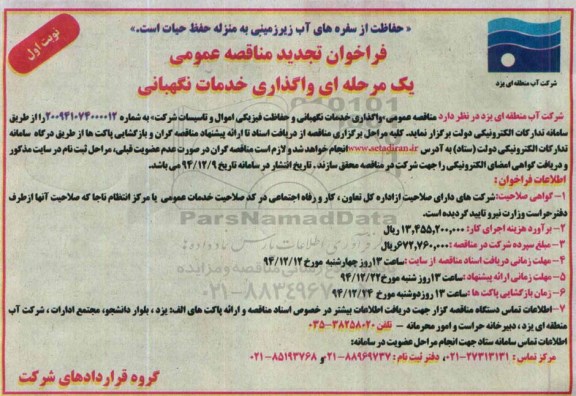 « حفاظت از سفره های آب زیرزمینی به منزله حفظ حیات است.»
نوبت اول
فراخوان تجدید مناقصه عمومی
یک مرحله ای واگذاری خدمات نگهبانی
شرکت آب منطقه ای یزد
شرکت آب منطقه ای یزد در نظر دارد مناقصه عمومی «واگذاری خدمات نگهبانی و حفاظت فیزیکی اموال و تاسیسات شرکت» به شماره ۲۰۰۹۴۱۰۷۴۰۰۰۰۱۲ را از طریق
سامانه تدارکات الکترونیکی دولت برگزار نماید. کلیه مراحل برگزاری مناقصه از دریافت اسناد تا ارائه پیشنهاد مناقصه گران و بازگشایی پاکت ها از طریق درگاه سامانه
تدارکات الکترونیکی دولت (ستاد) به آدرس www.setadiran.ir انجام خواهد شد و لازم است مناقصه گران در صورت عدم عضویت قبلی، مراحل ثبت نام در سایت مذکور
و دریافت گواهی امضای الکترونیکی را جهت شرکت در مناقصه محقق سازند. تاریخ انتشار در سامانه تاریخ ۹۴/۱۲/۹ می باشد
اطلاعات فراخوان :
۱- گواهی صلاحیت: شرکت های دارای صلاحیت از اداره کل تعاون ، کار و رفاه اجتماعی در کد صلاحیت خدمات عمومی یا مرکز انتظام ناجا که صلاحیت آنها از طرف
دفتر حراست وزارت نیرو تایید گردیده است.
۲- برآورد هزینه اجرای کار: ۱۳,۴۵۵,۲۰۰,۰۰۰ ریال
۳- مبلغ سپرده شرکت در مناقصه : ۶۷۲,۷۶۰,۰۰۰ ریال
۴- مهلت زمانی دریافت اسناد مناقصه از سایت: ساعت ۱۳ روز چهارشنبه مورخ ۹۴/۱۲/۱۲
۵- مهلت زمانی ارائه پیشنهاد : ساعت ۱۳ روز شنبه مورخ ۹۴/۱۲/۲۲
۶- زمان بازگشایی پاکت ها : ساعت ۱۳ روز دوشنبه مورخ ۹۴/۱۲/۲۴
۷- اطلاعات تماس دستگاه مناقصه گزار جهت دریافت اطلاعات بیشتر در خصوص اسناد مناقصه و ارائه پاکت های الف: یزد ، بلوار دانشجو، مجتمع ادارات ، شرکت آب
منطقه ای یزد ، دبیرخانه حراست و امور محرمانه - تلفن ۳۸۲۵۸۰۲۰-۰۳۵
اطلاعات تماس سامانه ستاد جهت انجام مراحل عضویت در سامانه:
مرکز تماس : ۲۷۳۱۳۱۳۱-۰۲۱ ، دفتر ثبت نام : ۸۸۹۶۹۷۳۷-۰۲۱ و ۸۵۱۹۳۷۶۸-۰۲۱
گروه قراردادهای شرکت
ParsNamadData
۰۲۱-۸۸۳۴۹۶۷۰